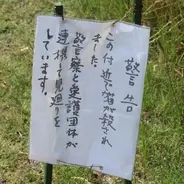 警告
この付近で猫が殺され
ました。
警察と愛護団体が
連携して見廻りを
しています。